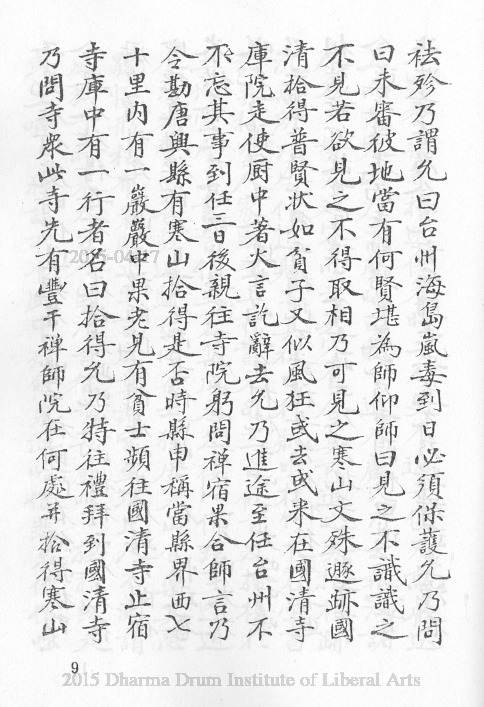 祛殄乃謂允曰台州海島嵐毒到日必須保護允乃問
曰未審彼地當有何賢堪為師仰師曰見之不識識之
不見若欲見之不得取相乃可見之寒山文殊遯跡國
清拾得普賢状如貧子又似風狂或去或来在國清寺
庫院走使厨中著火言訖辭去允乃進途至任台州不
忘其事到任三日後親往寺院躬問禅宿果合師言乃
令勘唐興縣有寒山拾得是否時縣申稱當縣界西七
十里内有一巖巖中果老見有貧士頻往國清寺止宿
寺庫中有一行者名曰拾得允乃特往禮拜到國清寺
乃問寺衆此寺先有豐干禅師院在何處并拾得寒山
9
2015 Dharma Drum Institute of Liberal Arts